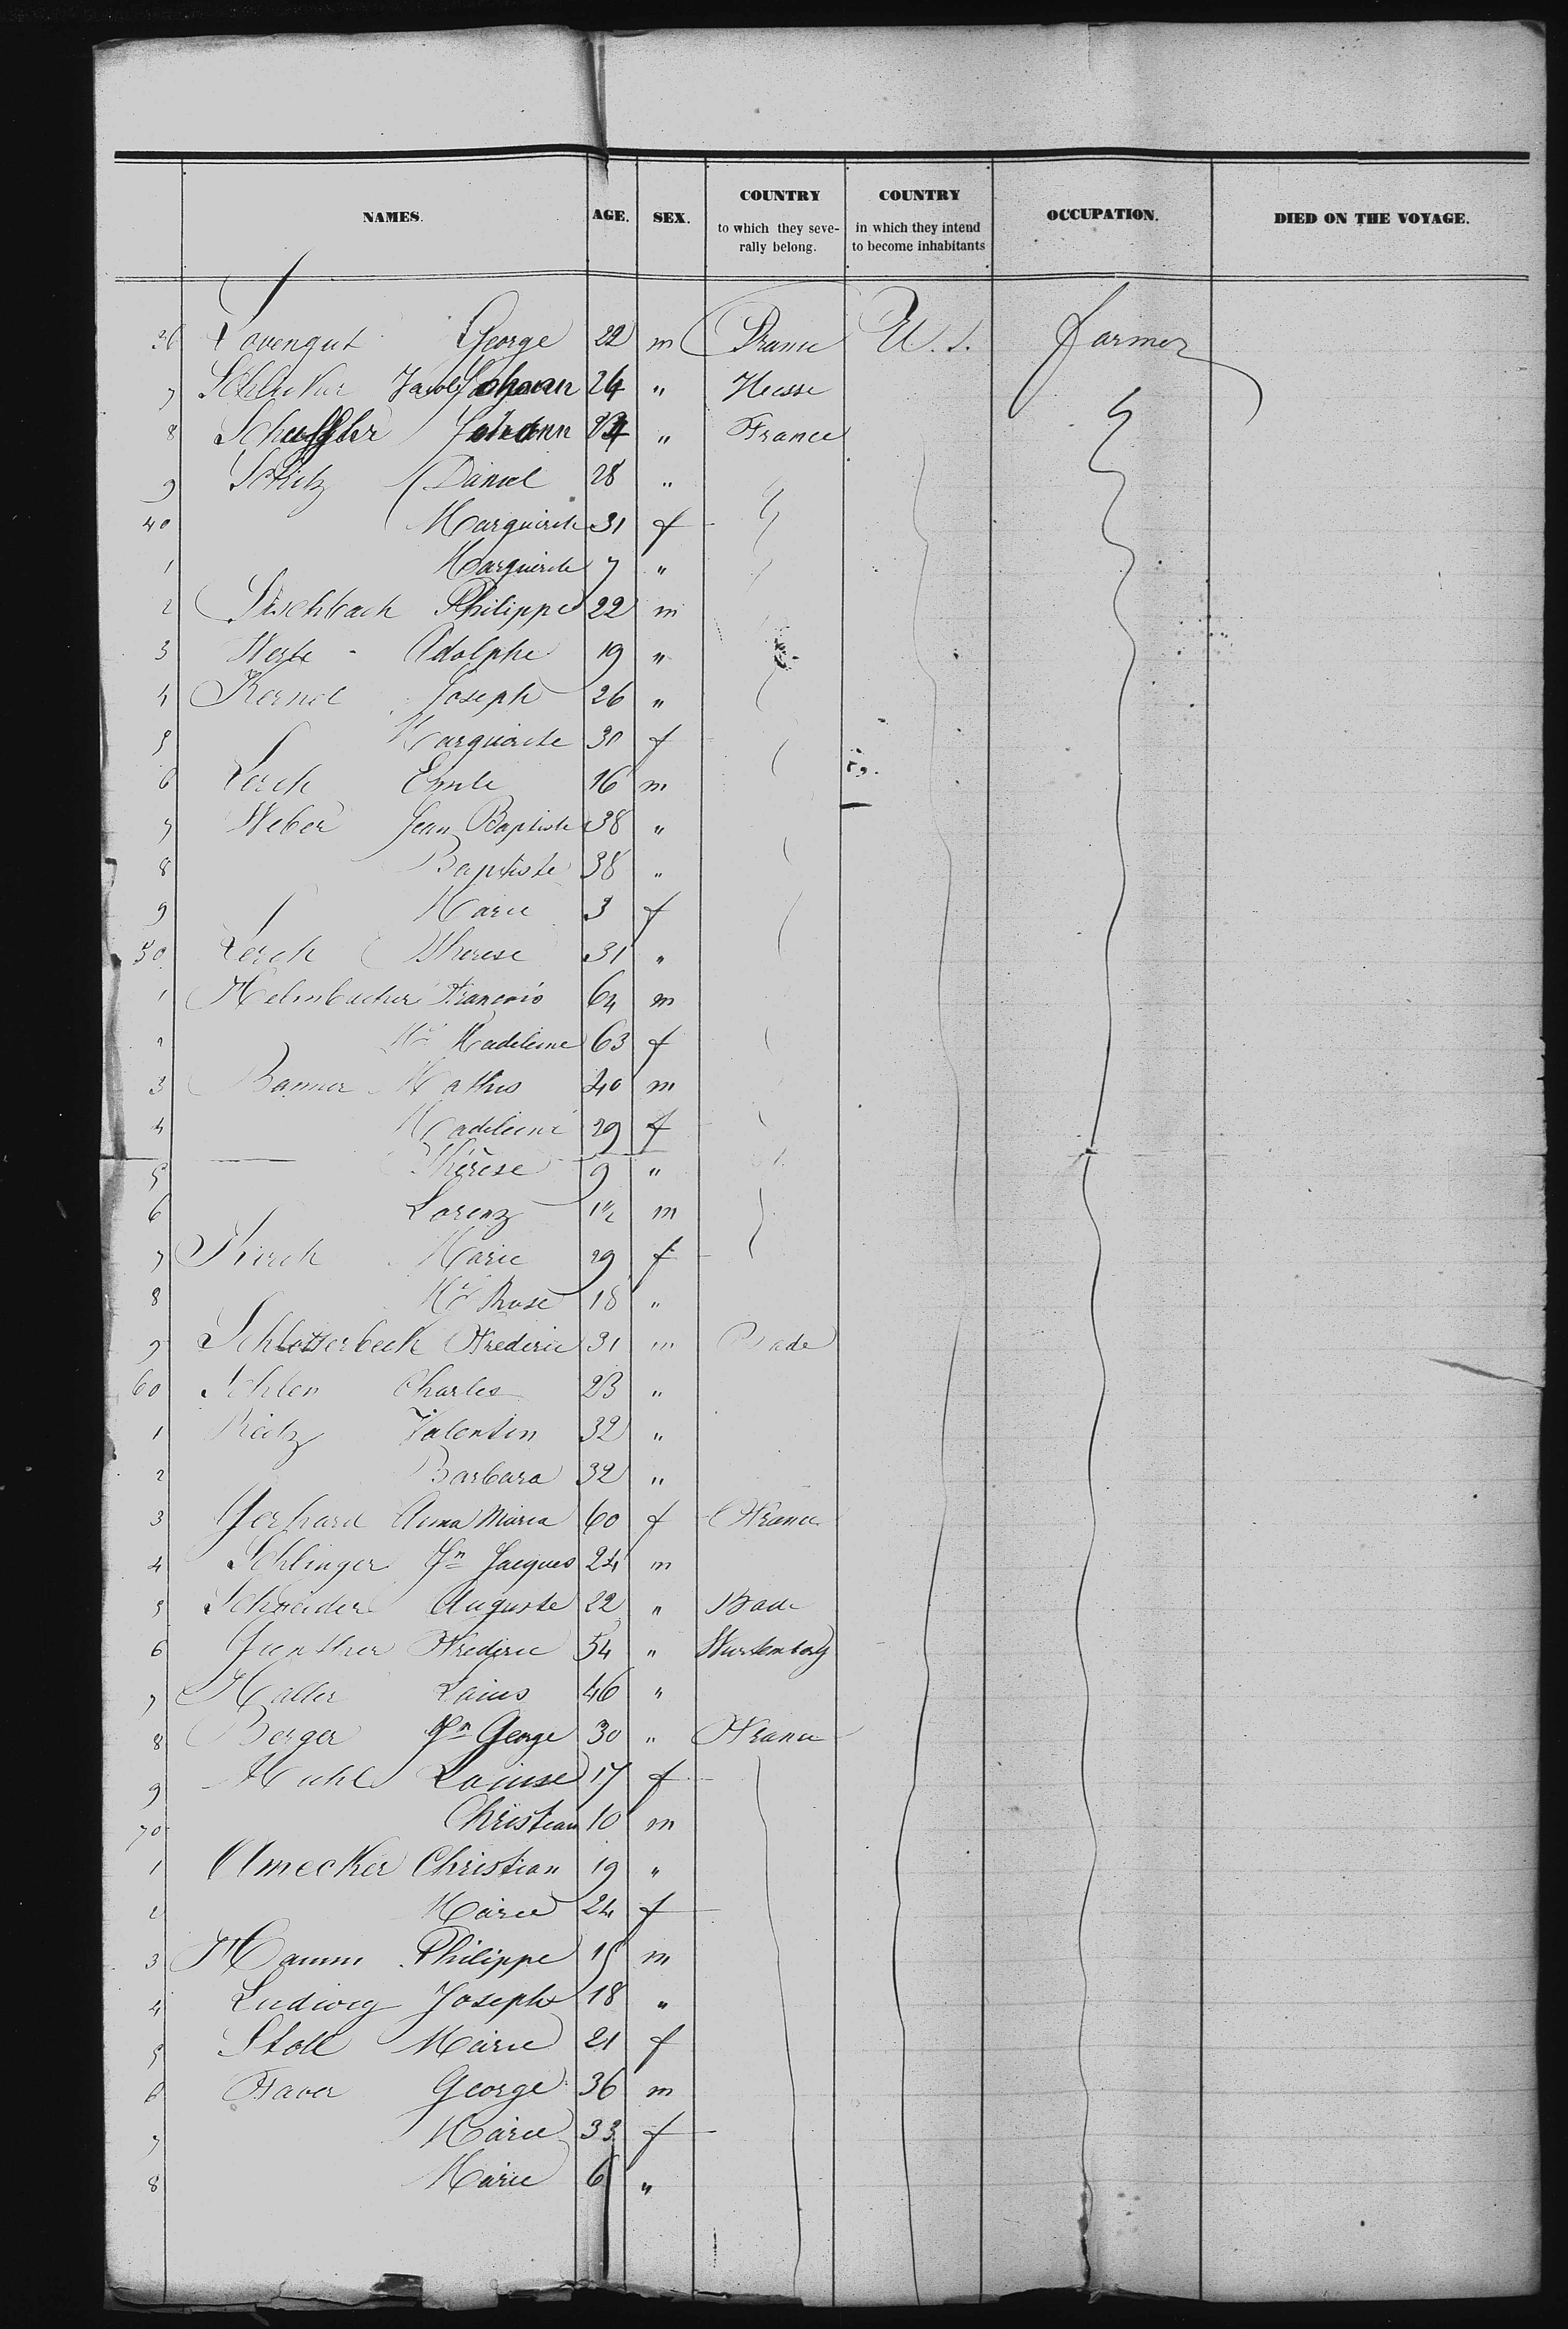 NAMES. AGE. SEX. COUNTRY to which they severally belong. COUNTRY in which they intend to become inhabitants OCCUPATION. DIED ON THE VOYAGE.
36 Lovengut George 22 m France U.S. farmer
7 Jacob Johann 24 " Hesse
8 Scheffler Johann 24 " France
9 Daniel 28 "
40 Marguerite 31 f
1 Marguerite 7 "
2 Fischbach Philippe 22 m
3 Adolphe 19 "
4 Joseph 26 "
5 Marguerite 30 f
6 Lerch Emile 16 m
7 Weber Jean Baptiste 38 "
8 Baptiste 38 "
9 Marie 3 f
50 Lerch Therese 31 "
1 Helmbacher François 64 m
2 Mie Madeleine 63 f
3 Banner Mathis 40 m
4 Madeleine 29 f
5 Thérèse 9 "
6 Lorenz m
7 Marie 29 f
8 Mie Rose 18 "
9 Schlotterbeck Frederic 31 m Bade
60 Schlen Charles 23 "
1 Reitz Valentin 32 "
2 Barbara 32 "
3 Gerhard Anna Maria 60 f France
4 Schlinger Jn Jacques 24 m
5 Schneider Auguste 22 " Bade
6 Gunther Frederic 54 " Wurtemberg
7 Haller Louis 46 "
8 Berger Jn George 30 " France
9 Muhl Louise 17 f
70 Christian 10 m
1 Amecker Christian 19 "
2 Marie 24 f
3 Hamm Philippe 15 m
4 Ludwig Joseph 18 "
5 Stoll Marie 21 f
6 Faver George 36 m
7 Marie 33 f
8 Marie 6 "